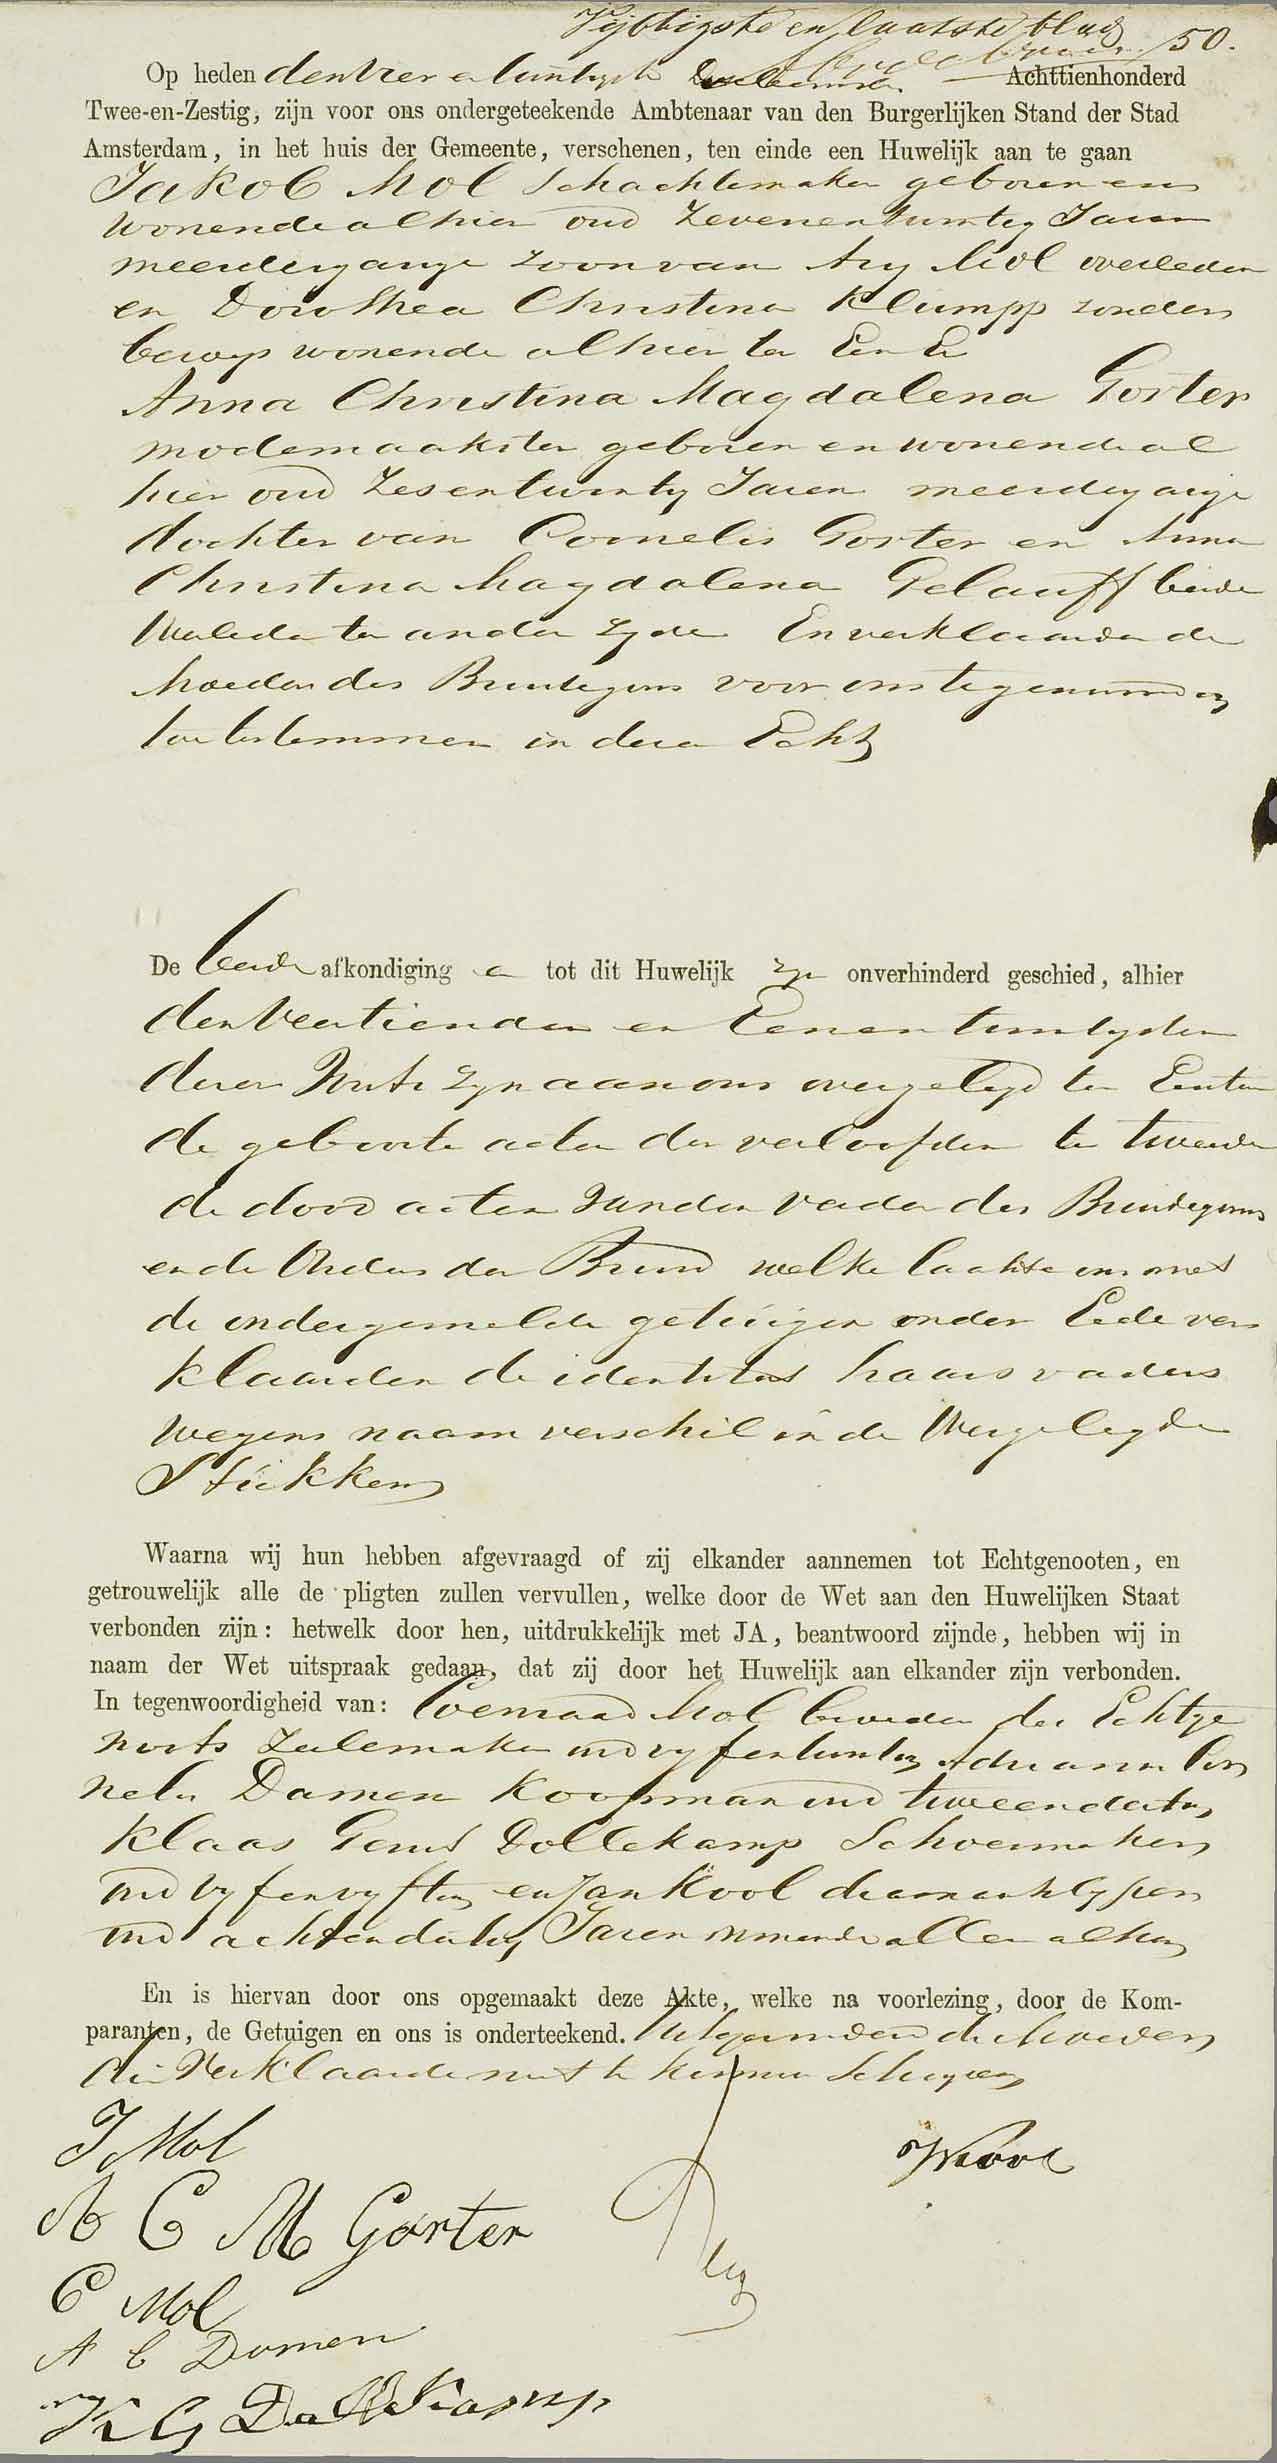 Vijftigste en laatste blad
50.
Op heden den vier en twintigste December Achttienhonderd
Twee-en-Zestig, zijn voor ons ondergeteekende Ambtenaar van den Burgerlijken Stand der Stad
Amsterdam, in het huis der Gemeente, verschenen, ten einde een Huwelijk aan te gaan
Jakob Mol Schachtemaker geboren en
wonende alhier oud Zevenentwintig Jaren
meerderjarige zoon van Ary Mol overleden
en Dorothea Christina Klumpp zonder
beroep wonende alhier ter Eenre
Anna Christina Magdalena Gorter
modemaakster geboren en wonende al
hier oud Zesentwintig Jaren meerderjarige
dochter van Cornelis Gorter en Anna
Christina Magdalena Gelauff beide
Overleden ter andere zyde En verklaarde de
Moeder des Bruidegoms voor ons tegenwoordig
toe te stemmen in deze Echt
De beide afkondiging en tot dit Huwelijk zyn onverhinderd geschied, alhier
den Veertienden en Eenentwintigsten
dezer Zynde aan ons overgelegd ten Eerste
de geboorte acten der verloofden ten tweede
de dood acten van den vader des Bruidegoms
en de Ouders der Bruid welke laatste ons met
de ondergemelde getuigen onder Eede ver
klaarden de identiteit haars vaders
wegens naam verschil in de Overgelegde
Stukken
Waarna wij hun hebben afgevraagd of zij elkander aannemen tot Echtgenooten, en
getrouwelijk alle de pligten zullen vervullen, welke door de Wet aan den Huwelijken Staat
verbonden zijn: hetwelk door hen, uitdrukkelijk met JA, beantwoord zijnde, hebben wij in
naam der Wet uitspraak gedaan, dat zij door het Huwelijk aan elkander zijn verbonden.
In tegenwoordigheid van: Coenraad Mol broeder des Echtge
noots Zeilemaker oud vyfentwintig Adrianus Cor
nelis Damen Koopman oud tweeendertig
Klaas Gerrit Dollekamp Schoenmaker
oud vyfenvyftig en Jan Kool diamantslyper
oud achtendertig Jaren wonende allen alhier
En is hiervan door ons opgemaakt deze Akte, welke na voorlezing, door de Kom-
paranten, de Getuigen en ons is onderteekend. Uitgezonderd de Moeder
die Verklaarde niet te kunnen Schryven
J Mol
J Kool
A C M Gorter
C Mol
A C Damen
K G Dollekamp